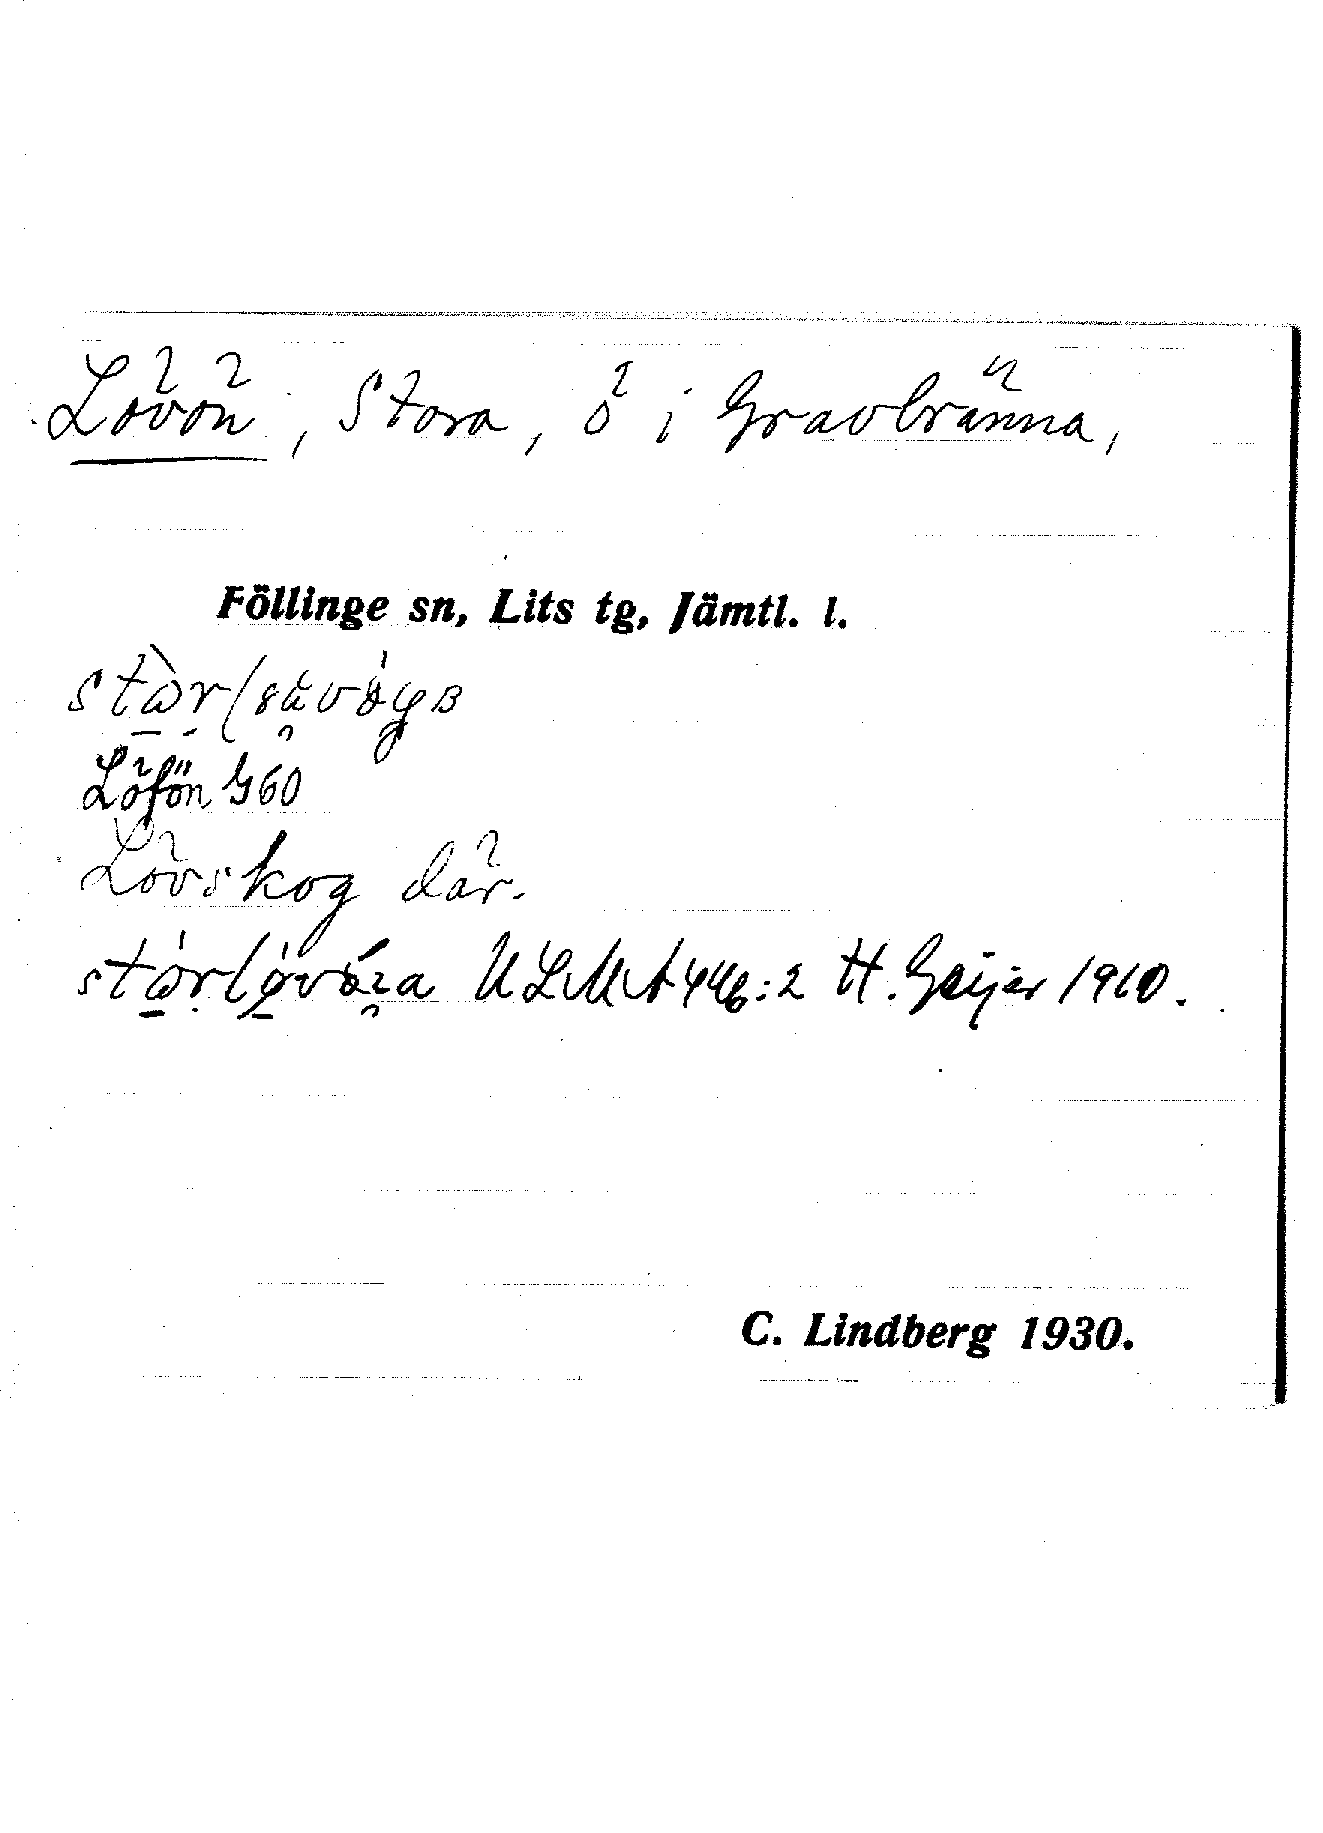 Lövön, Stora, ö i Gravbränna,
Föllinge sn, Lits tg, Jämtl. l.
Löfön G60
Lövskog där.
ULMA 446:2 H. Geijer 1910.
C. Lindberg 1930.